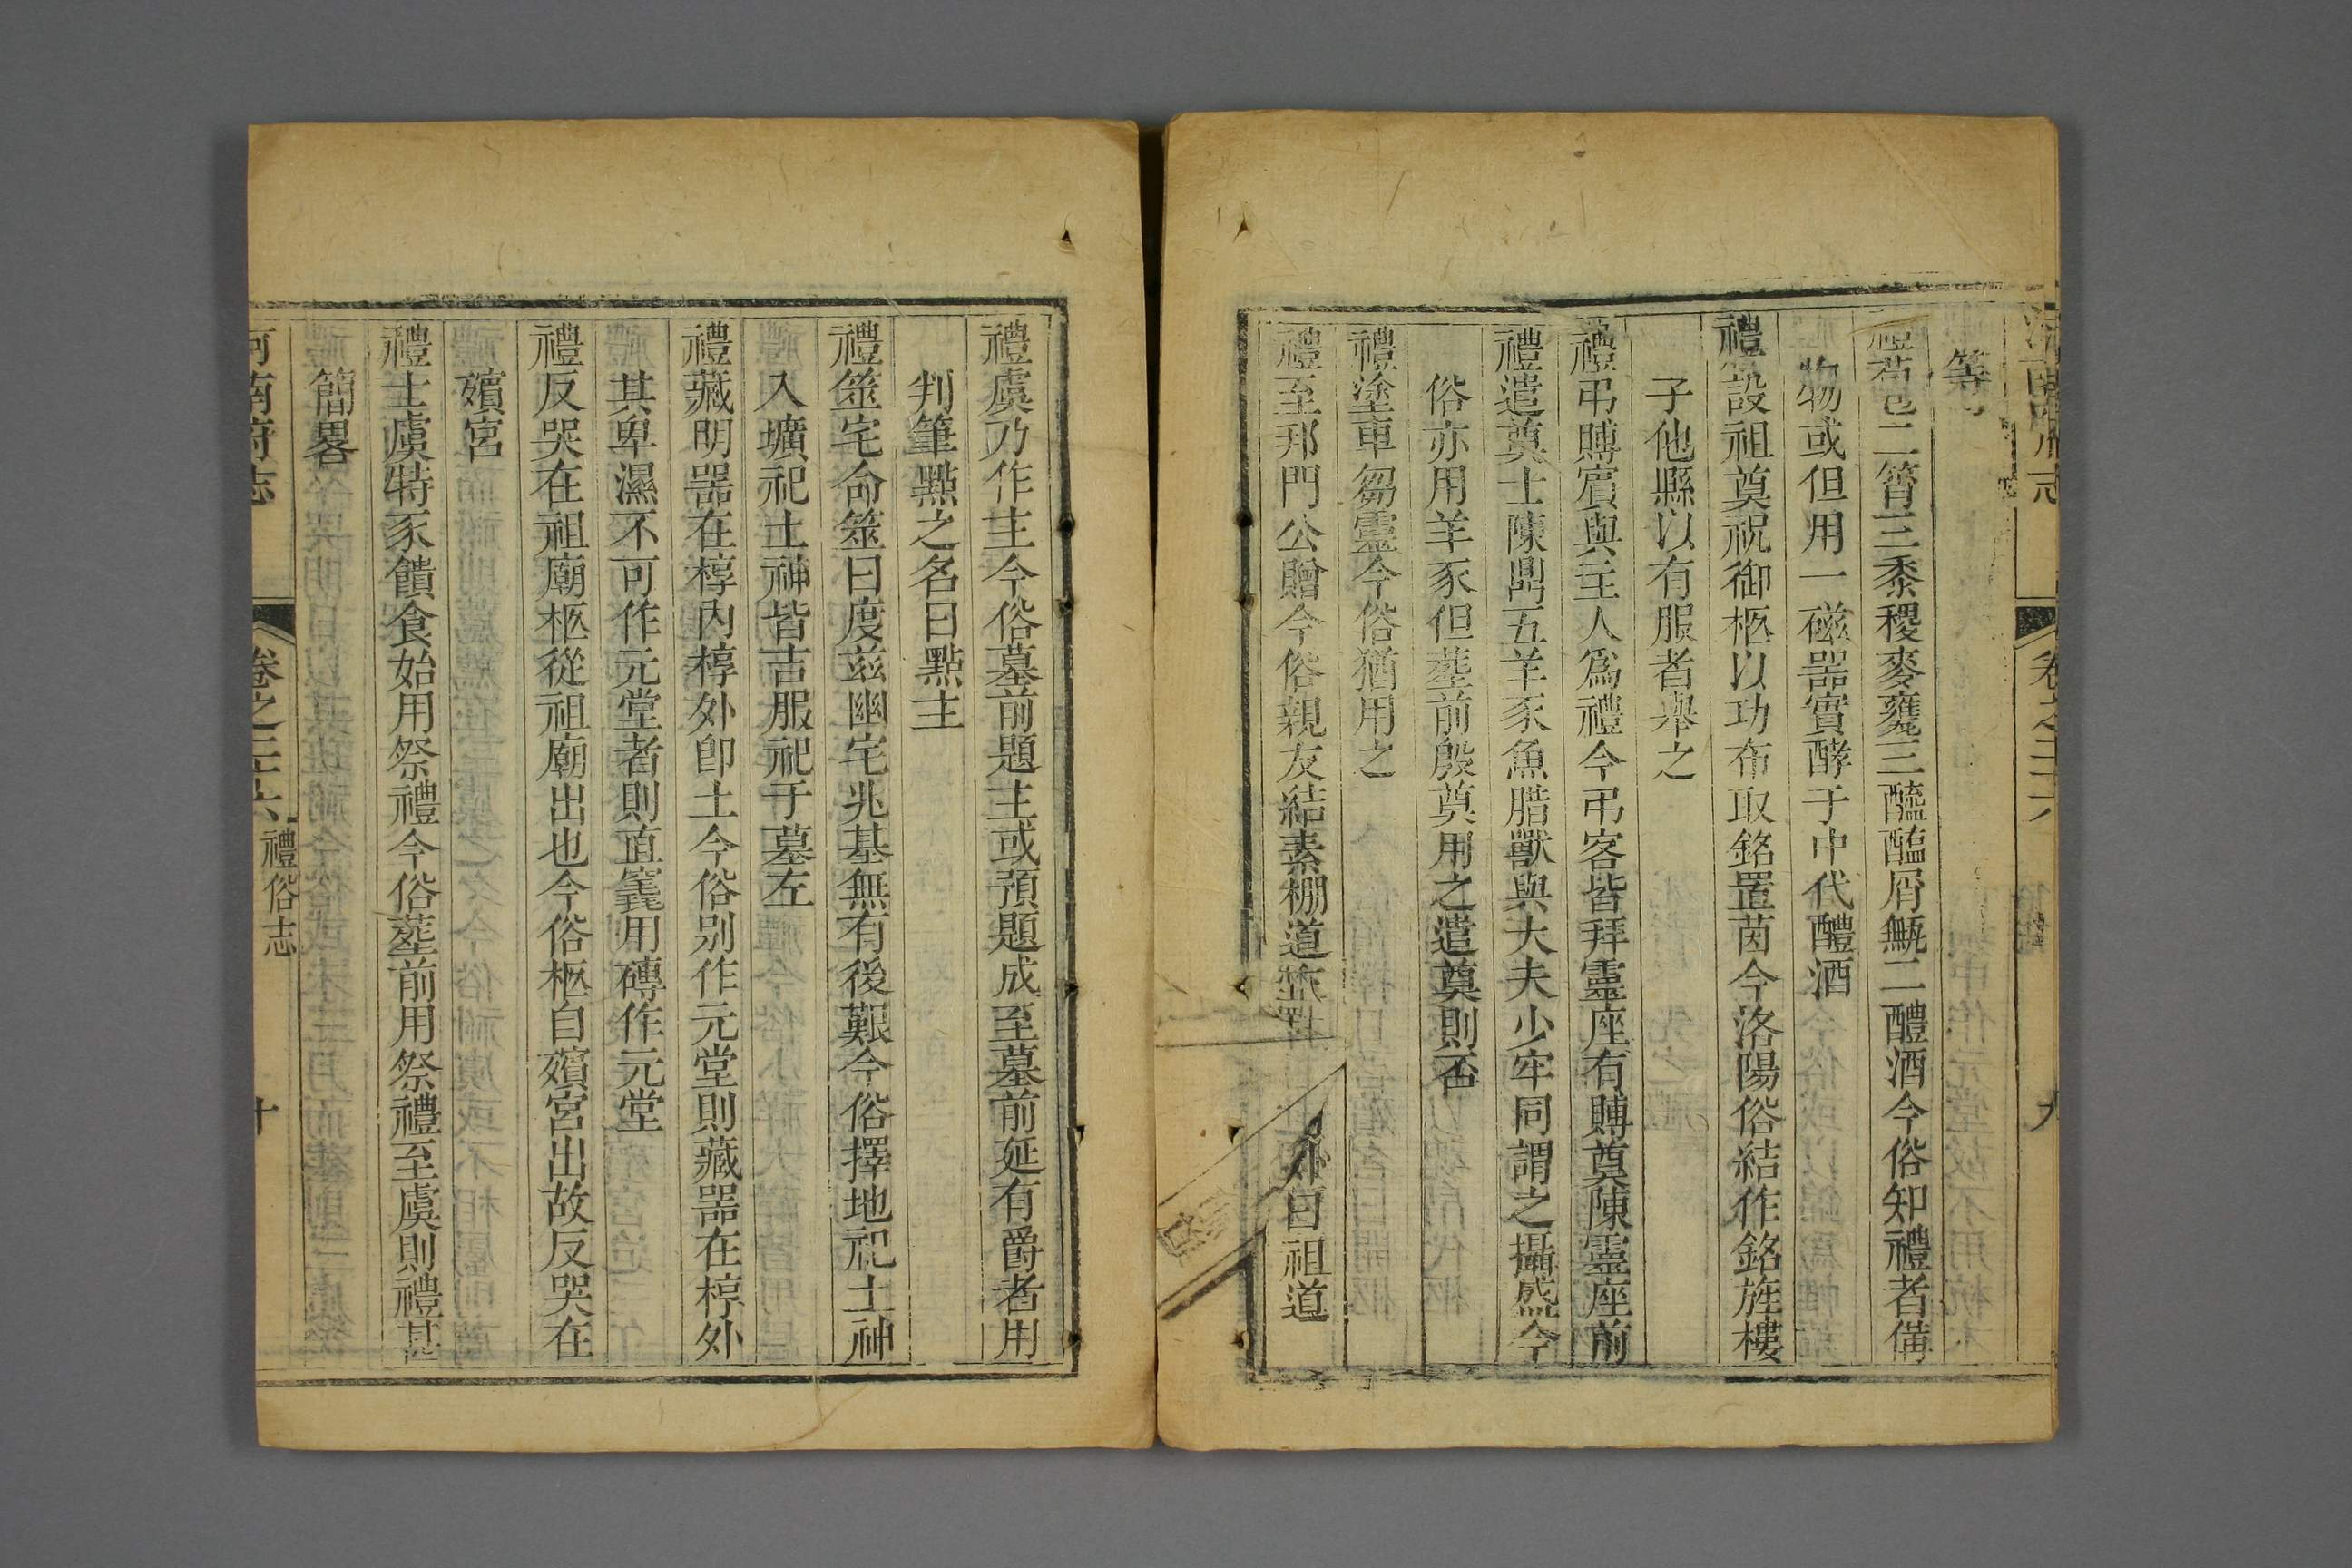 等
禮苞二筲三黍稷麥甕三醯醢屑甒二醴酒今俗知禮者備
物或但用一磁器實酵于中代醴酒
禮設祖奠祝御柩以功布取銘置茵今洛陽俗結作銘旌樓
子他縣以有服者舉之
禮弔賻賓與主人爲禮今弔客皆拜靈座有賻奠陳靈座前
禮遣奠士陳鼎五羊豕魚腊獸與大夫少牢同謂之攝盛今
俗亦用羊豕但塟前殷奠用之遣奠則否
禮塗車芻靈今俗猶用之
禮至邦門公贈今俗親友結素棚道 外曰祖道
卷之三六
九
禮虞乃作主今俗墓前題主或預題成至墓前延有爵者用
判筆點之名曰點主
禮筮宅命筮曰度兹幽宅兆基無有後艱今俗擇地祀土神
入壙祀土神皆吉服祀于墓左
禮藏明器在椁內椁外卽土今俗别作元堂則藏器在椁外
其卑濕不可作元堂者則直窆用磚作元堂
禮反哭在祖廟柩從祖廟出也今俗柩自殯宮出故反哭在
殯宮
禮士虞特豕饋食始用祭禮今俗塟前用祭禮至虞則禮甚
簡畧
河南府志
卷之三六
禮俗志
十